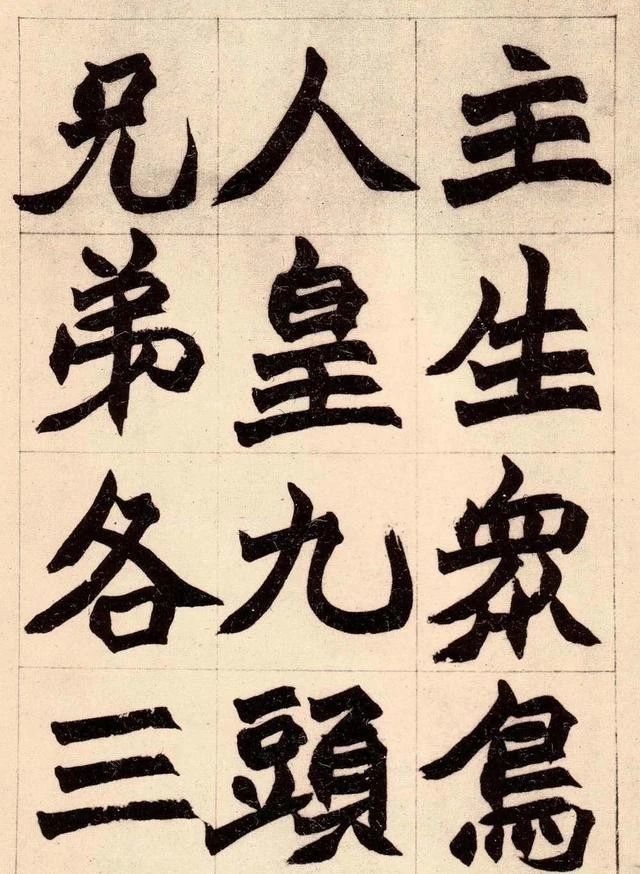 主生眾為
人皇九頭
兄弟各三